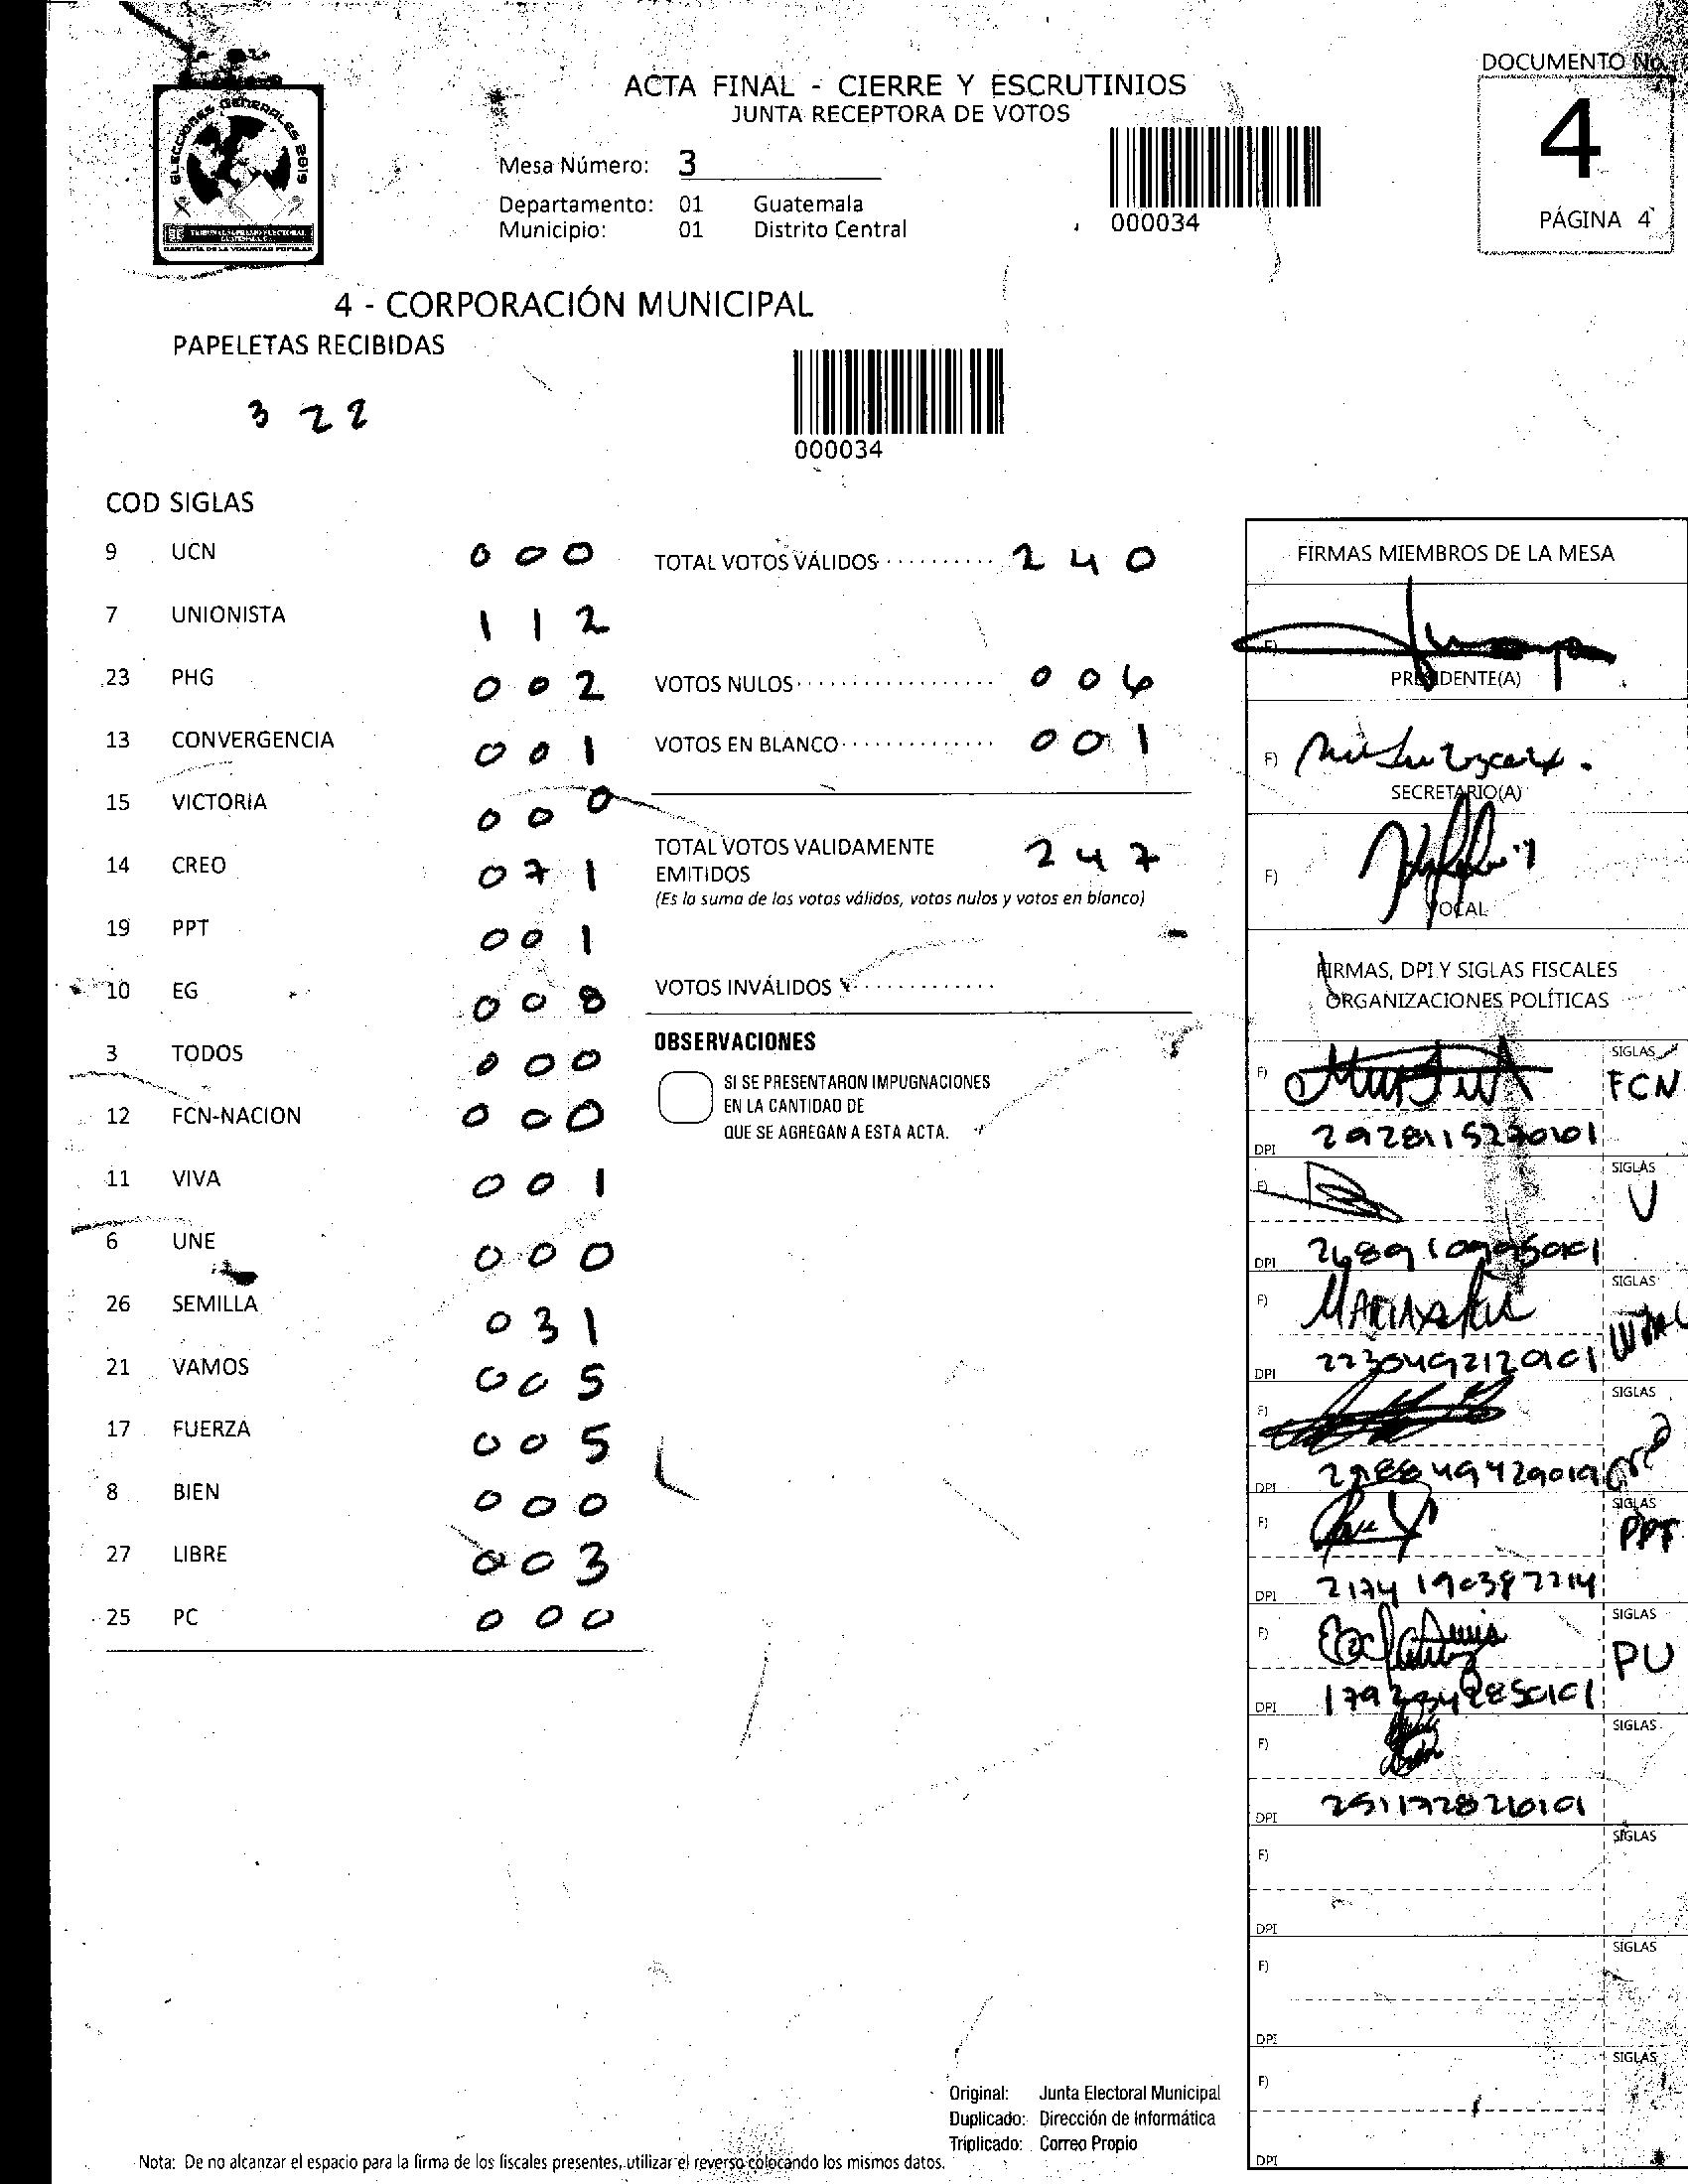 DOCUMENTO No.
4
PÁGINA 4
ELECCIONES GENERALES 2019
ACTA FINAL - CIERRE Y ESCRUTINIOS
JUNTA RECEPTORA DE VOTOS
Mesa Número: 3
Departamento: 01 Guatemala
Municipio: 01 Distrito Central
000034
4 - CORPORACIÓN MUNICIPAL
PAPELETAS RECIBIDAS
3 2 2
000034
COD SIGLAS
9 UCN 0 0 0
7 UNIONISTA 1 1 2
23 PHG 0 0 2
13 CONVERGENCIA 0 0 1
15 VICTORIA 0 0 0
14 CREO 0 7 1
19 PPT 0 0 1
10 EG 0 0 8
3 TODOS 0 0 0
12 FCN-NACION 0 0 0
11 VIVA 0 0 1
6 UNE 0 0 0
26 SEMILLA 0 3 1
21 VAMOS 0 0 5
17 FUERZA 0 0 5
8 BIEN 0 0 0
27 LIBRE 0 0 3
25 PC 0 0 0
TOTAL VOTOS VÁLIDOS .......... 2 4 0
VOTOS NULOS .................. 0 0 6
VOTOS EN BLANCO .............. 0 0 1
TOTAL VOTOS VALIDAMENTE
EMITIDOS 2 4 7
(Es la suma de los votos válidos, votos nulos y votos en blanco)
VOTOS INVÁLIDOS .............
OBSERVACIONES
SI SE PRESENTARON IMPUGNACIONES
EN LA CANTIDAD DE
QUE SE AGREGAN A ESTA ACTA.
FIRMAS MIEMBROS DE LA MESA
F)
PRESIDENTE(A)
F)
SECRETARIO(A)
F)
VOCAL
FIRMAS, DPI Y SIGLAS FISCALES
ORGANIZACIONES POLÍTICAS
F) SIGLAS
FCN
DPI 2928115270101
F) SIGLAS
U
DPI
F) SIGLAS
DPI 2230492120101
F) SIGLAS
DPI
F) SIGLAS
PPT
DPI
F) SIGLAS
PU
DPI
F) SIGLAS
DPI
F) SIGLAS
DPI
F) SIGLAS
DPI
F) SIGLAS
DPI
Original: Junta Electoral Municipal
Duplicado: Dirección de Informática
Triplicado: Correo Propio
Nota: De no alcanzar el espacio para la firma de los fiscales presentes, utilizar el reverso colocando los mismos datos.